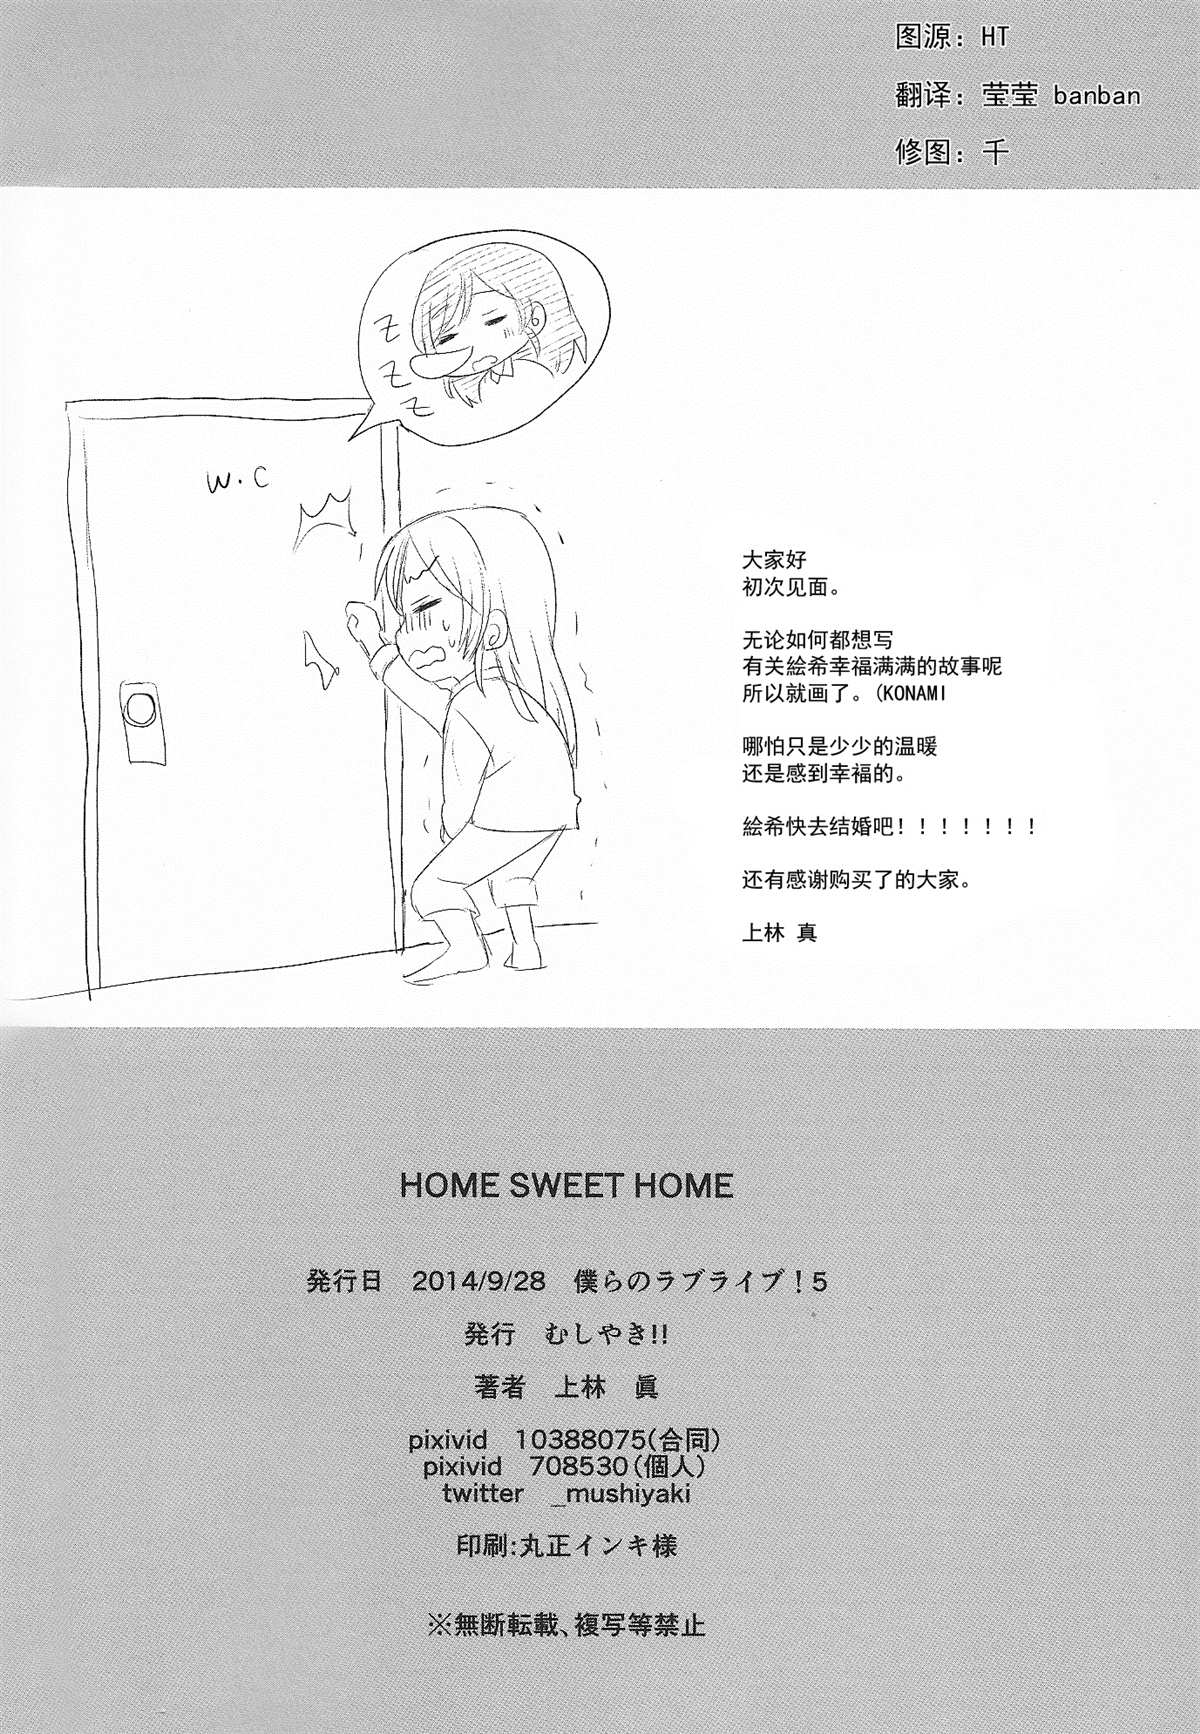 图源: HT
翻译: 莹莹 banban
修图: 千
Z
Z
Z
W.C
大家好
初次见面。
无论如何都想写
有关絵希幸福满满的故事呢
所以就画了。(KONAMI
哪怕只是少少的温暖
还是感到幸福的。
絵希快去结婚吧！！！！！！！
还有感谢购买了的大家。
上林 真
HOME SWEET HOME
発行日　2014/9/28　僕らのラブライブ！5
発行　むしやき!!
著者　上林　眞
pixivid　10388075(合同)
pixivid　708530(個人)
twitter　_mushiyaki
印刷:丸正インキ様
※無断転載、複写等禁止